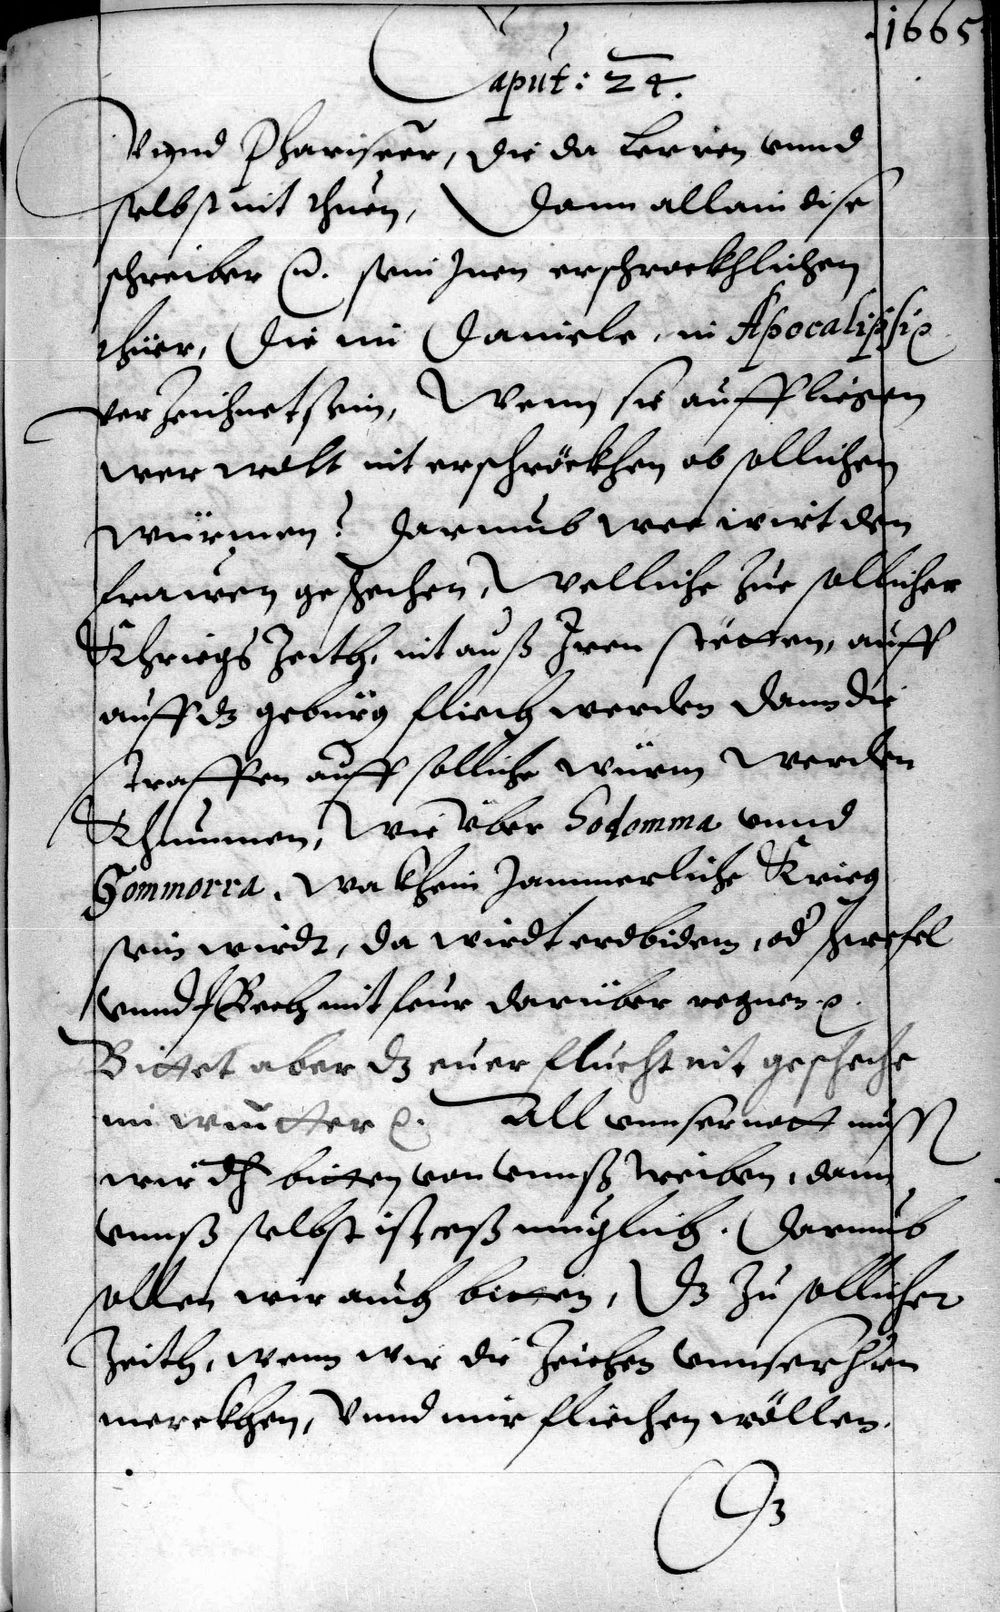 1665
Caput: 24.
Vnnd Phariseer, die da Lerren vnnd
selbst nit thuen, Dann allain dise
schreiber sein Jnen erschrockhlichen
thier, die im Daniele, in Apocalipsi
verzeichnet sein, Wenn sie auffliegen
wer wolt nit erschröckhen ob sollichen
würmen? Darumb wee wirt den
frawen geschechen, Welliche zue sollicher
Khriegs Zeith, nit auß Jren stetten, auff
auff dz gebürg fliech werden dann die
straffen auff solliche würm werden
Khummen, Wie über Sodomma vnnd
Gommorra. Wa khein Jammerliche Krieg
sein wirdt, da wirdt erdbidem, od schwefel
vnnd Bech mit feur darüber regnen.
Bittet aber dz euer flucht nit gescheche
im wintter. All vnser nott muß
wir bitten von vnnß treiben, dann
vnnß selbst ist eß muglich. Darumb
sollen wir auch bitten, Dz zu sollicher
Zeith, wenn wir die Zeichen vnnsers
merckhen, Vnnd mir fliechen wöllen.
Dz